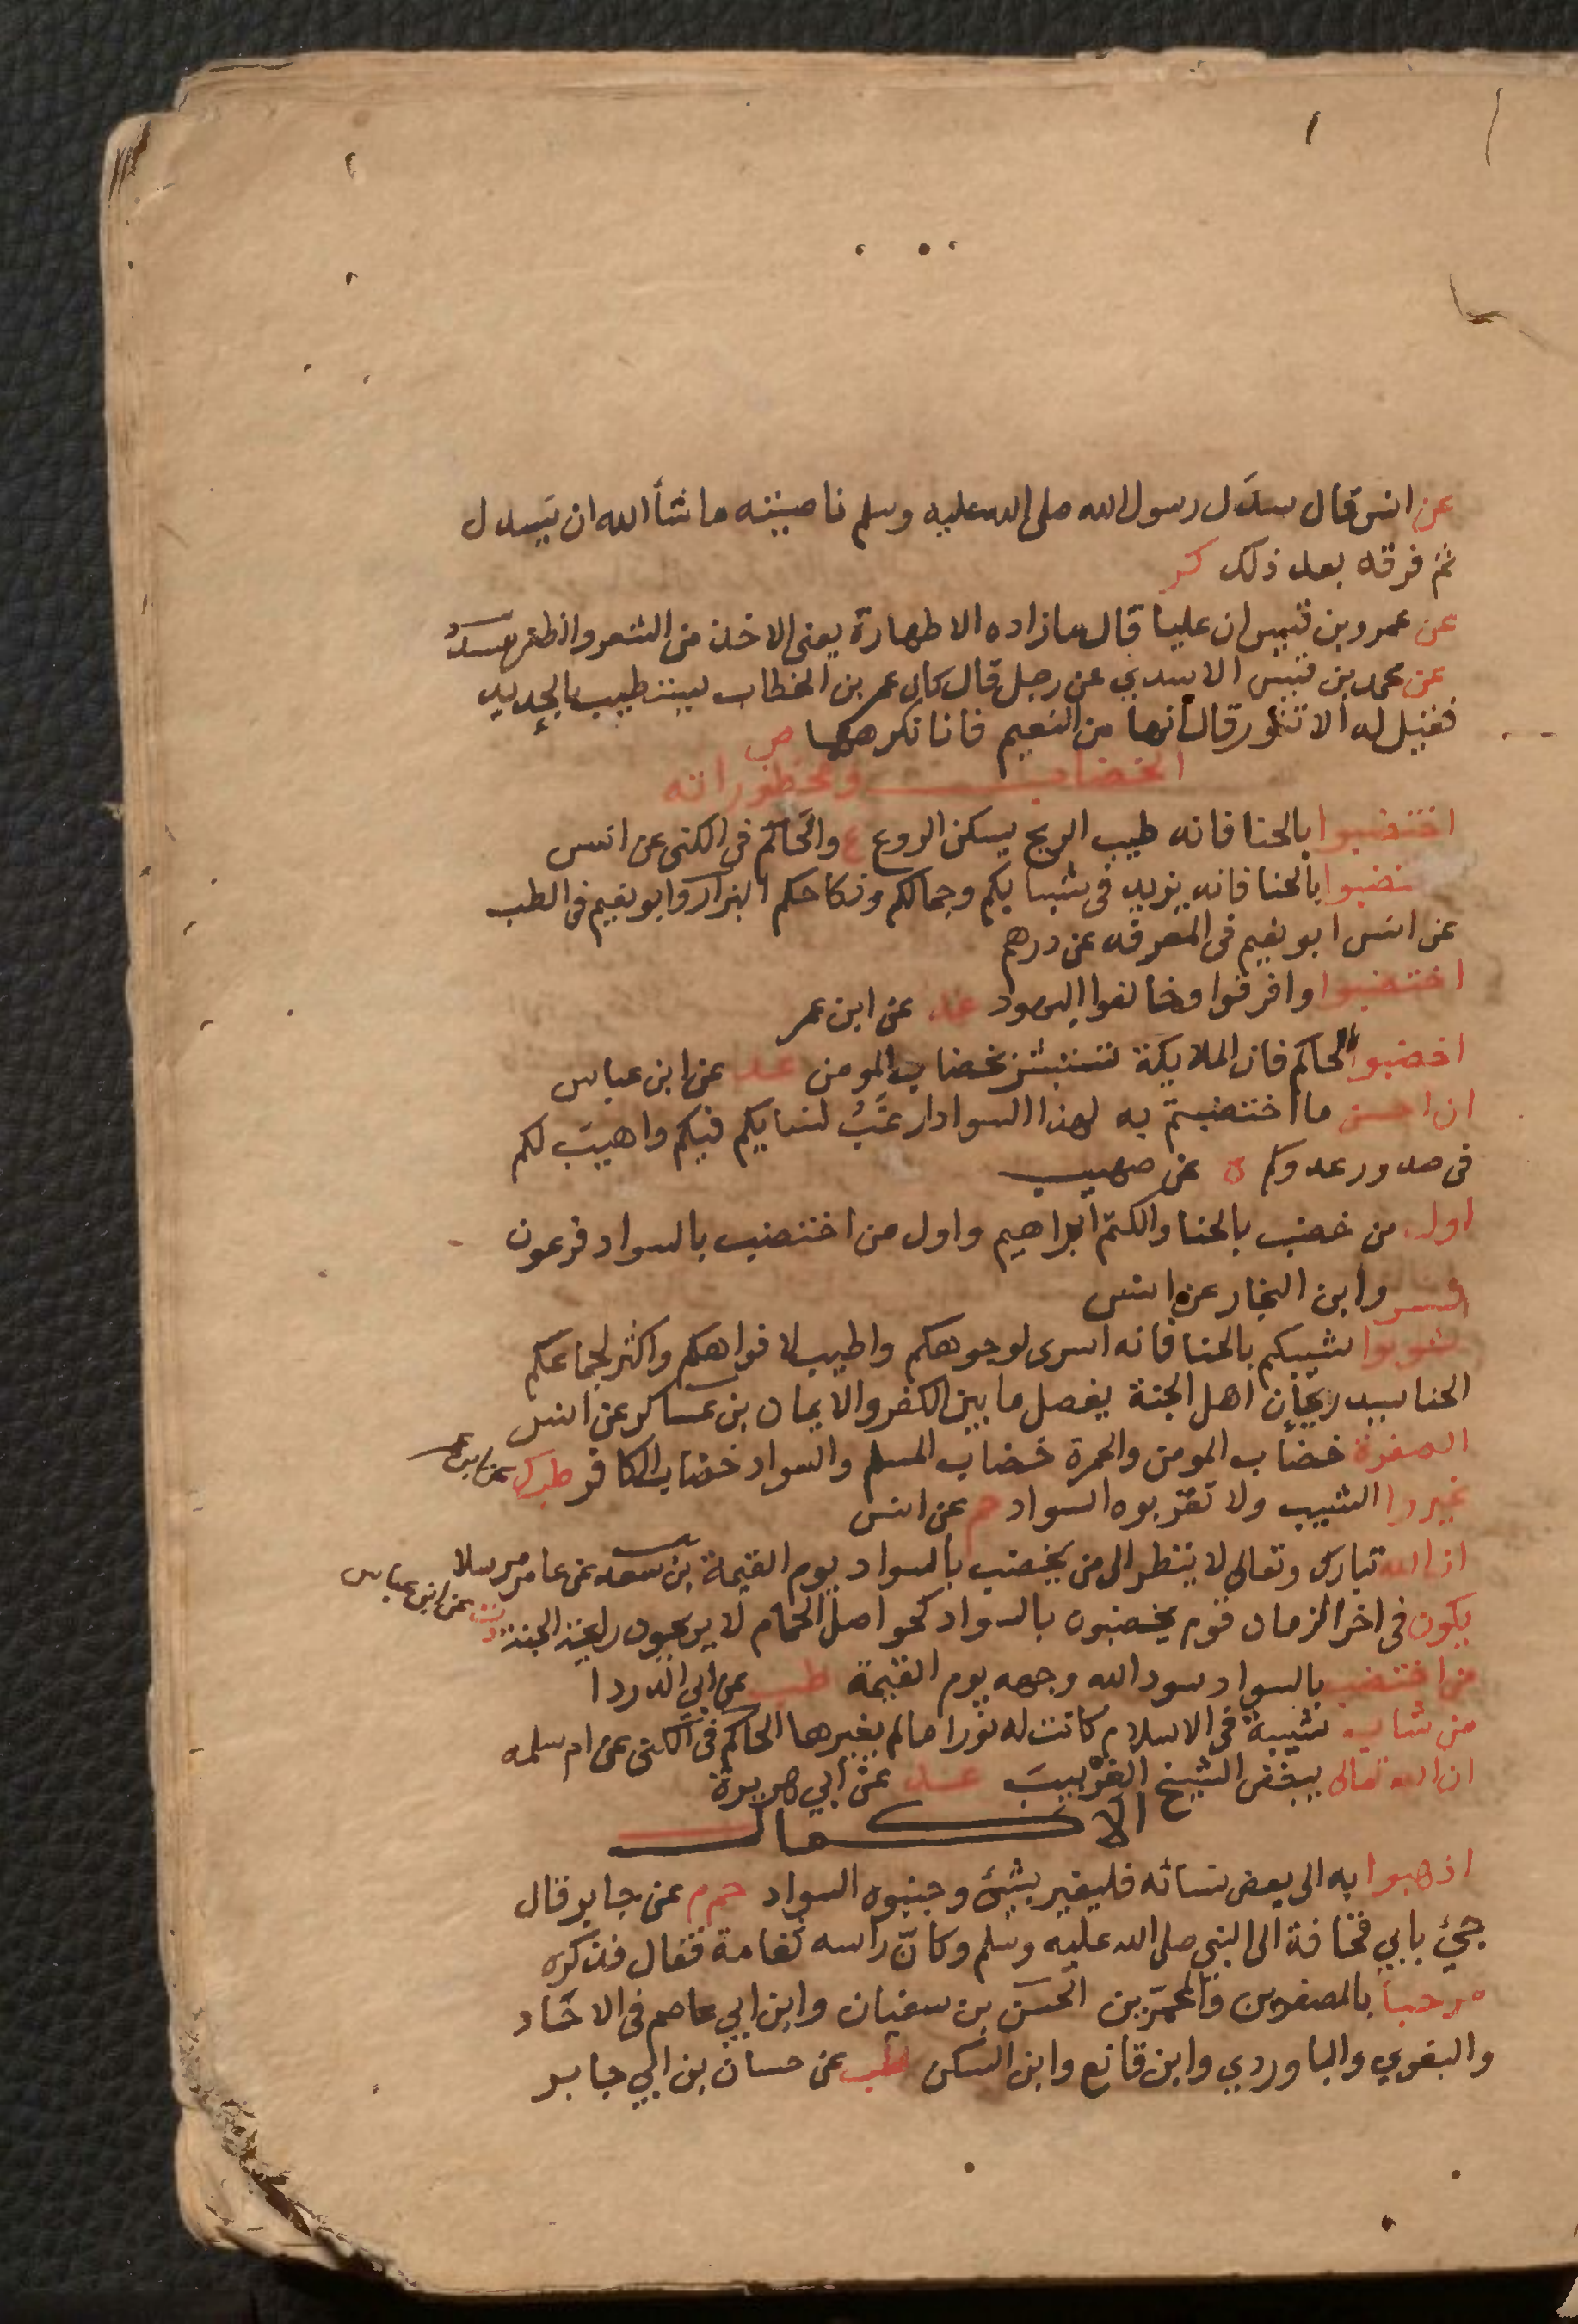 عن انس قال سدَل رسول الله صلى الله عليه وسلم ناصيته ما شأ الله ان يَسدل
ثم فرقه بعد ذلك كر
عن عمرو بن قيس ان عليا قال ما زاده الا طهارة يعنى الاخذ من الشعر والظفر مسدد
عن محمد بن قيس الاسدي عن رجل قال كان عمر بن الخطاب يستطيب بالحديد
فقيل له ألا تنور قال انها من النعيم فانا نكرهها ص
الخضاب ومحظوراته
اختضبوا بالحنا فانه طيب الريح يسكن الروع ع والحاكم فى الكنى عن انس
ختضبوا بالحنا فانه يزيد فى شبابكم وجمالكم ونكاحكم البزار وابو نعيم فى الطب
عن انس ابو نعيم فى المعرفه عن درهم
اختضبوا وافرقوا وخالفوا اليهود عد عن ابن عمر
اخضبوا لحاكم فان الملايكة تستبشر بخضاب المومن عد عن ابن عباس
ان احسن ما اختضبتم به لهذا السواد ارغبُ لنسايكم فيكم واهيبَ لكم
فى صدور عدوكم ه عن صهيب
اول من خضب بالحنا والكتم ابراهيم واول من اختضب بالسواد فرعون
فر وابن النجار عن انس
شوبوا شيبكم بالحنا فانه اسرى لوجوهكم واطيب لافواهكم واكثر لجماعكم
الحنا سيد ريحان اهل الجنة يفصل ما بين الكفر والايمان بن عساكر عن انس
الصفرة خضاب المومن والحمرة خضاب المسلم والسواد خضاب الكافر طب ك عن ابن عمر
غيروا الشيب ولا تقربوه السواد حم عن انس
ان الله تبارك وتعالى لا ينظر الى من يخضب بالسواد يوم القيمة بن سعد عن عامر مرسلا
يكون فى اخر الزمان قوم يخضبون بالسواد كحواصل الحمام لا يريحون رايحة الجنة دن عن ابن عباس
من اختضب بالسواد سود الله وجهه يوم القيمة طب عن ابي الدردا
من شاب شيبة فى الاسلام كانت له نورا ما لم يغيرها الحاكم فى الكنى عن ام سلمه
ان الله تعالى يبغض الشيخ الغرْبيبَ عد عن ابي هريرة
الاكمال
اذهبوا به الى بعض نسائه فليغير بشئ وجنبوه السواد حم م عن جابر قال
جيْ بابي قحافة الى النبى صلى الله عليه وسلم وكانّ راسه ثغامة فقال فذكره
مرحباً بالمصفرين والمحمرّين الحسن بن سفيان وابن ابي عاصم فى الاحاد
والبغوي والباوردي وابن قانع وابن السكن طب عن حسان بن ابي جابر